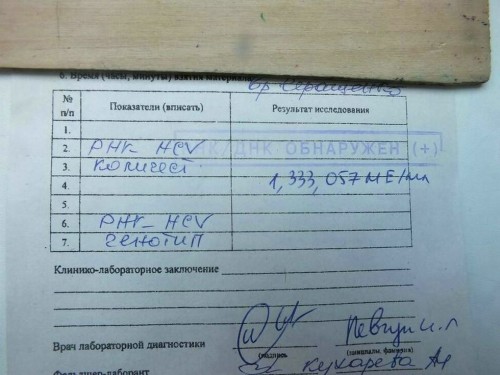 6. Время (часы, минуты) взятия материала
№ п/п Показатели (вписать) Результат исследования
1.
2. РНК-HCV ДНК ОБНАРУЖЕН (+)
3. количест.
4. 1,333,057 МЕ/мл
5.
6. РНК-HCV
7. генотип
Клинико-лабораторное заключение
Врач лабораторной диагностики
(подпись) (инициалы, фамилия)
Фельдшер-лаборант